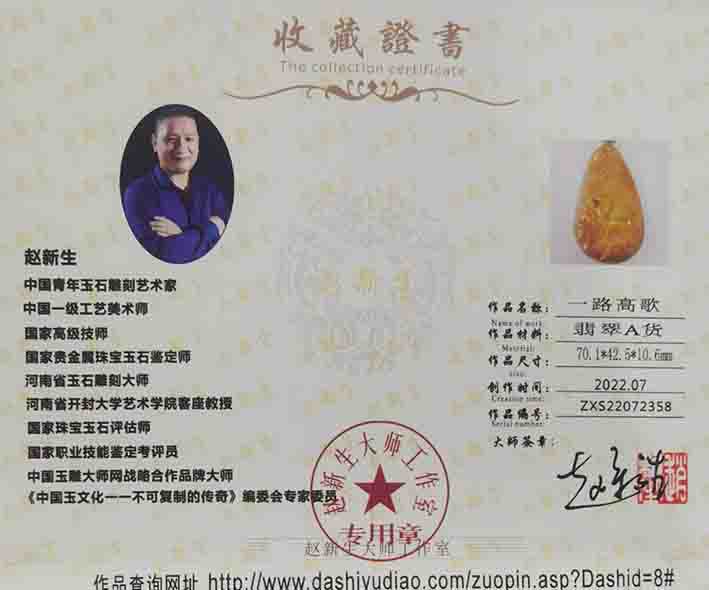 收藏證書
The collection certificate
赵新生
中国青年玉石雕刻艺术家
中国一级工艺美术师
国家高级技师
国家贵金属珠宝玉石鉴定师
河南省玉石雕刻大师
河南省开封大学艺术学院客座教授
国家珠宝玉石评估师
国家职业技能鉴定考评员
中国玉雕大师网战略合作品牌大师
《中国玉文化一一不可复制的传奇》编委会专家委员
作品名称： 一路高歌
Name of work:
作品材料： 翡翠A货
Material:
作品尺寸： 70.1*42.5*10.6mm
size:
创作时间： 2022.07
Creation time:
作品编号： ZXS22072358
Serial number:
大师签章：
赵新生大师工作室
专用章
赵新生大师工作室
作品查询网址 http://www.dashiyudiao.com/zuopin.asp?Dashid=8#